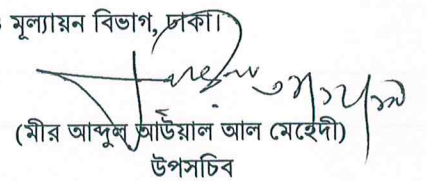 মূল্যায়ন বিভাগ, ঢাকা।
(মীর আব্দুল আউয়াল আল মেহেদী)
উপসচিব